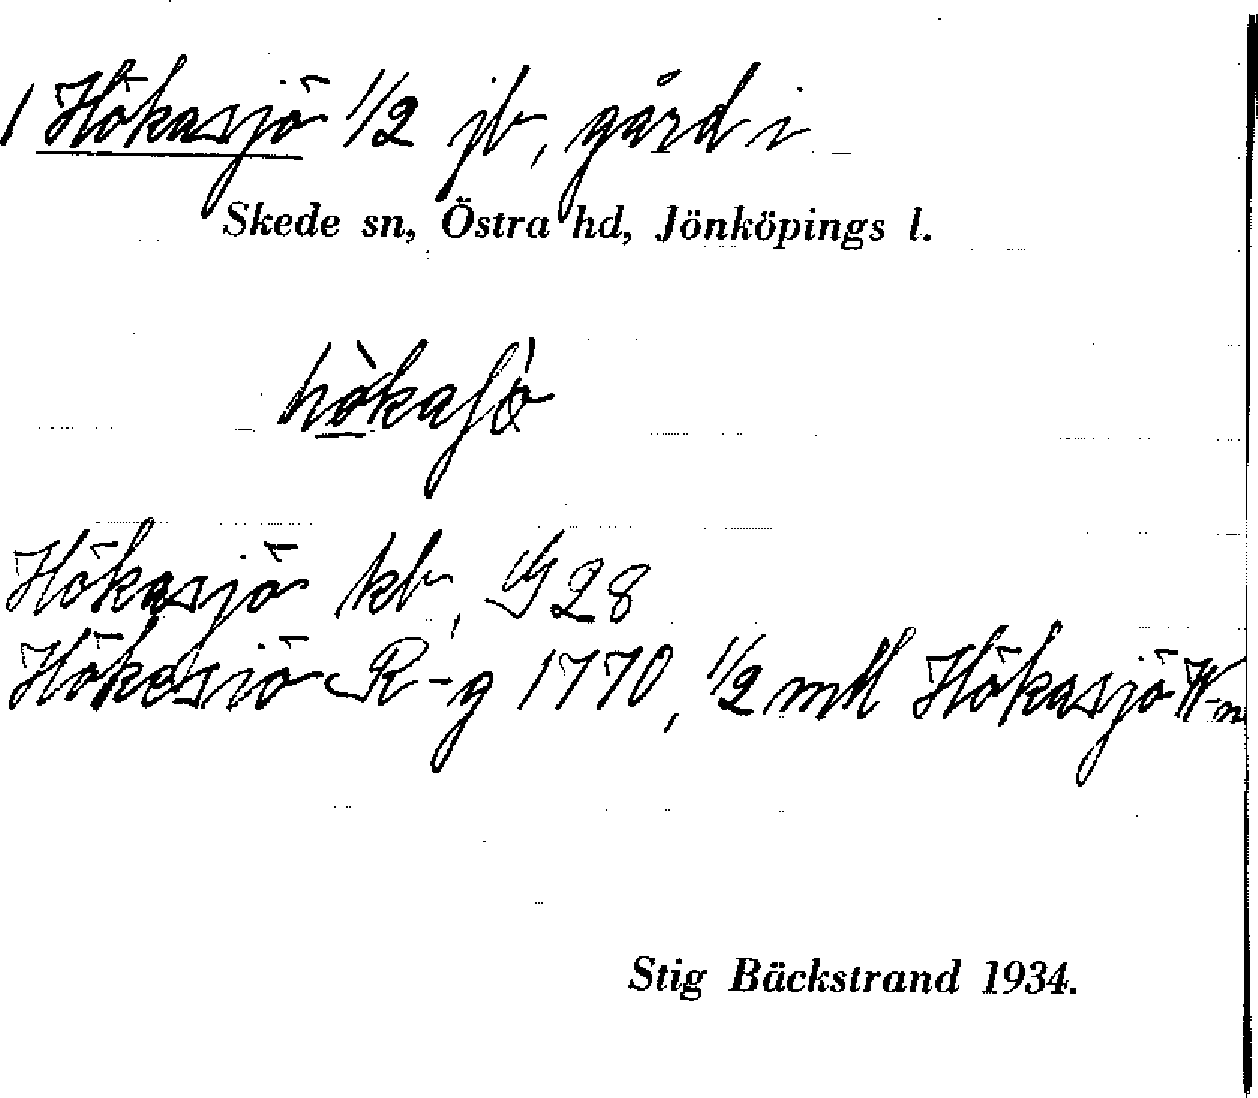 1 Hökasjö 1/2 jb, gård i
Skede sn, Östra hd, Jönköpings l.
hòkaʃö́
Hökasjö kb, G 28
Hökesjö R-g 1770, 1/2 mtl Hökasjö W-m
Stig Bäckstrand 1934.